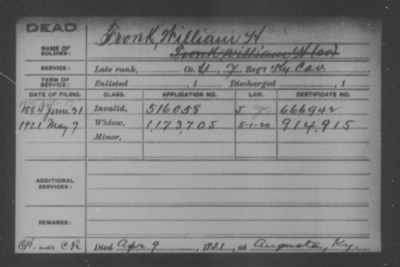 DEAD
NAME OF SOLDIER: Tronk, William H
Tronk, William H
SERVICE: Late rank, Co. 7 Reg't Ky Cav
TERM OF SERVICE: Enlisted , 1 Discharged , 1
DATE OF FILING. CLASS. APPLICATION NO. LAW. CERTIFICATE NO.
1884 June 21 Invalid, 516058 J 666942
1921 May 7 Widow, 1,173,705 5-1-20 914,915
Minor,
ADDITIONAL SERVICES:
REMARKS:
Died Apr 9, 1921, at Augusta, Ky.